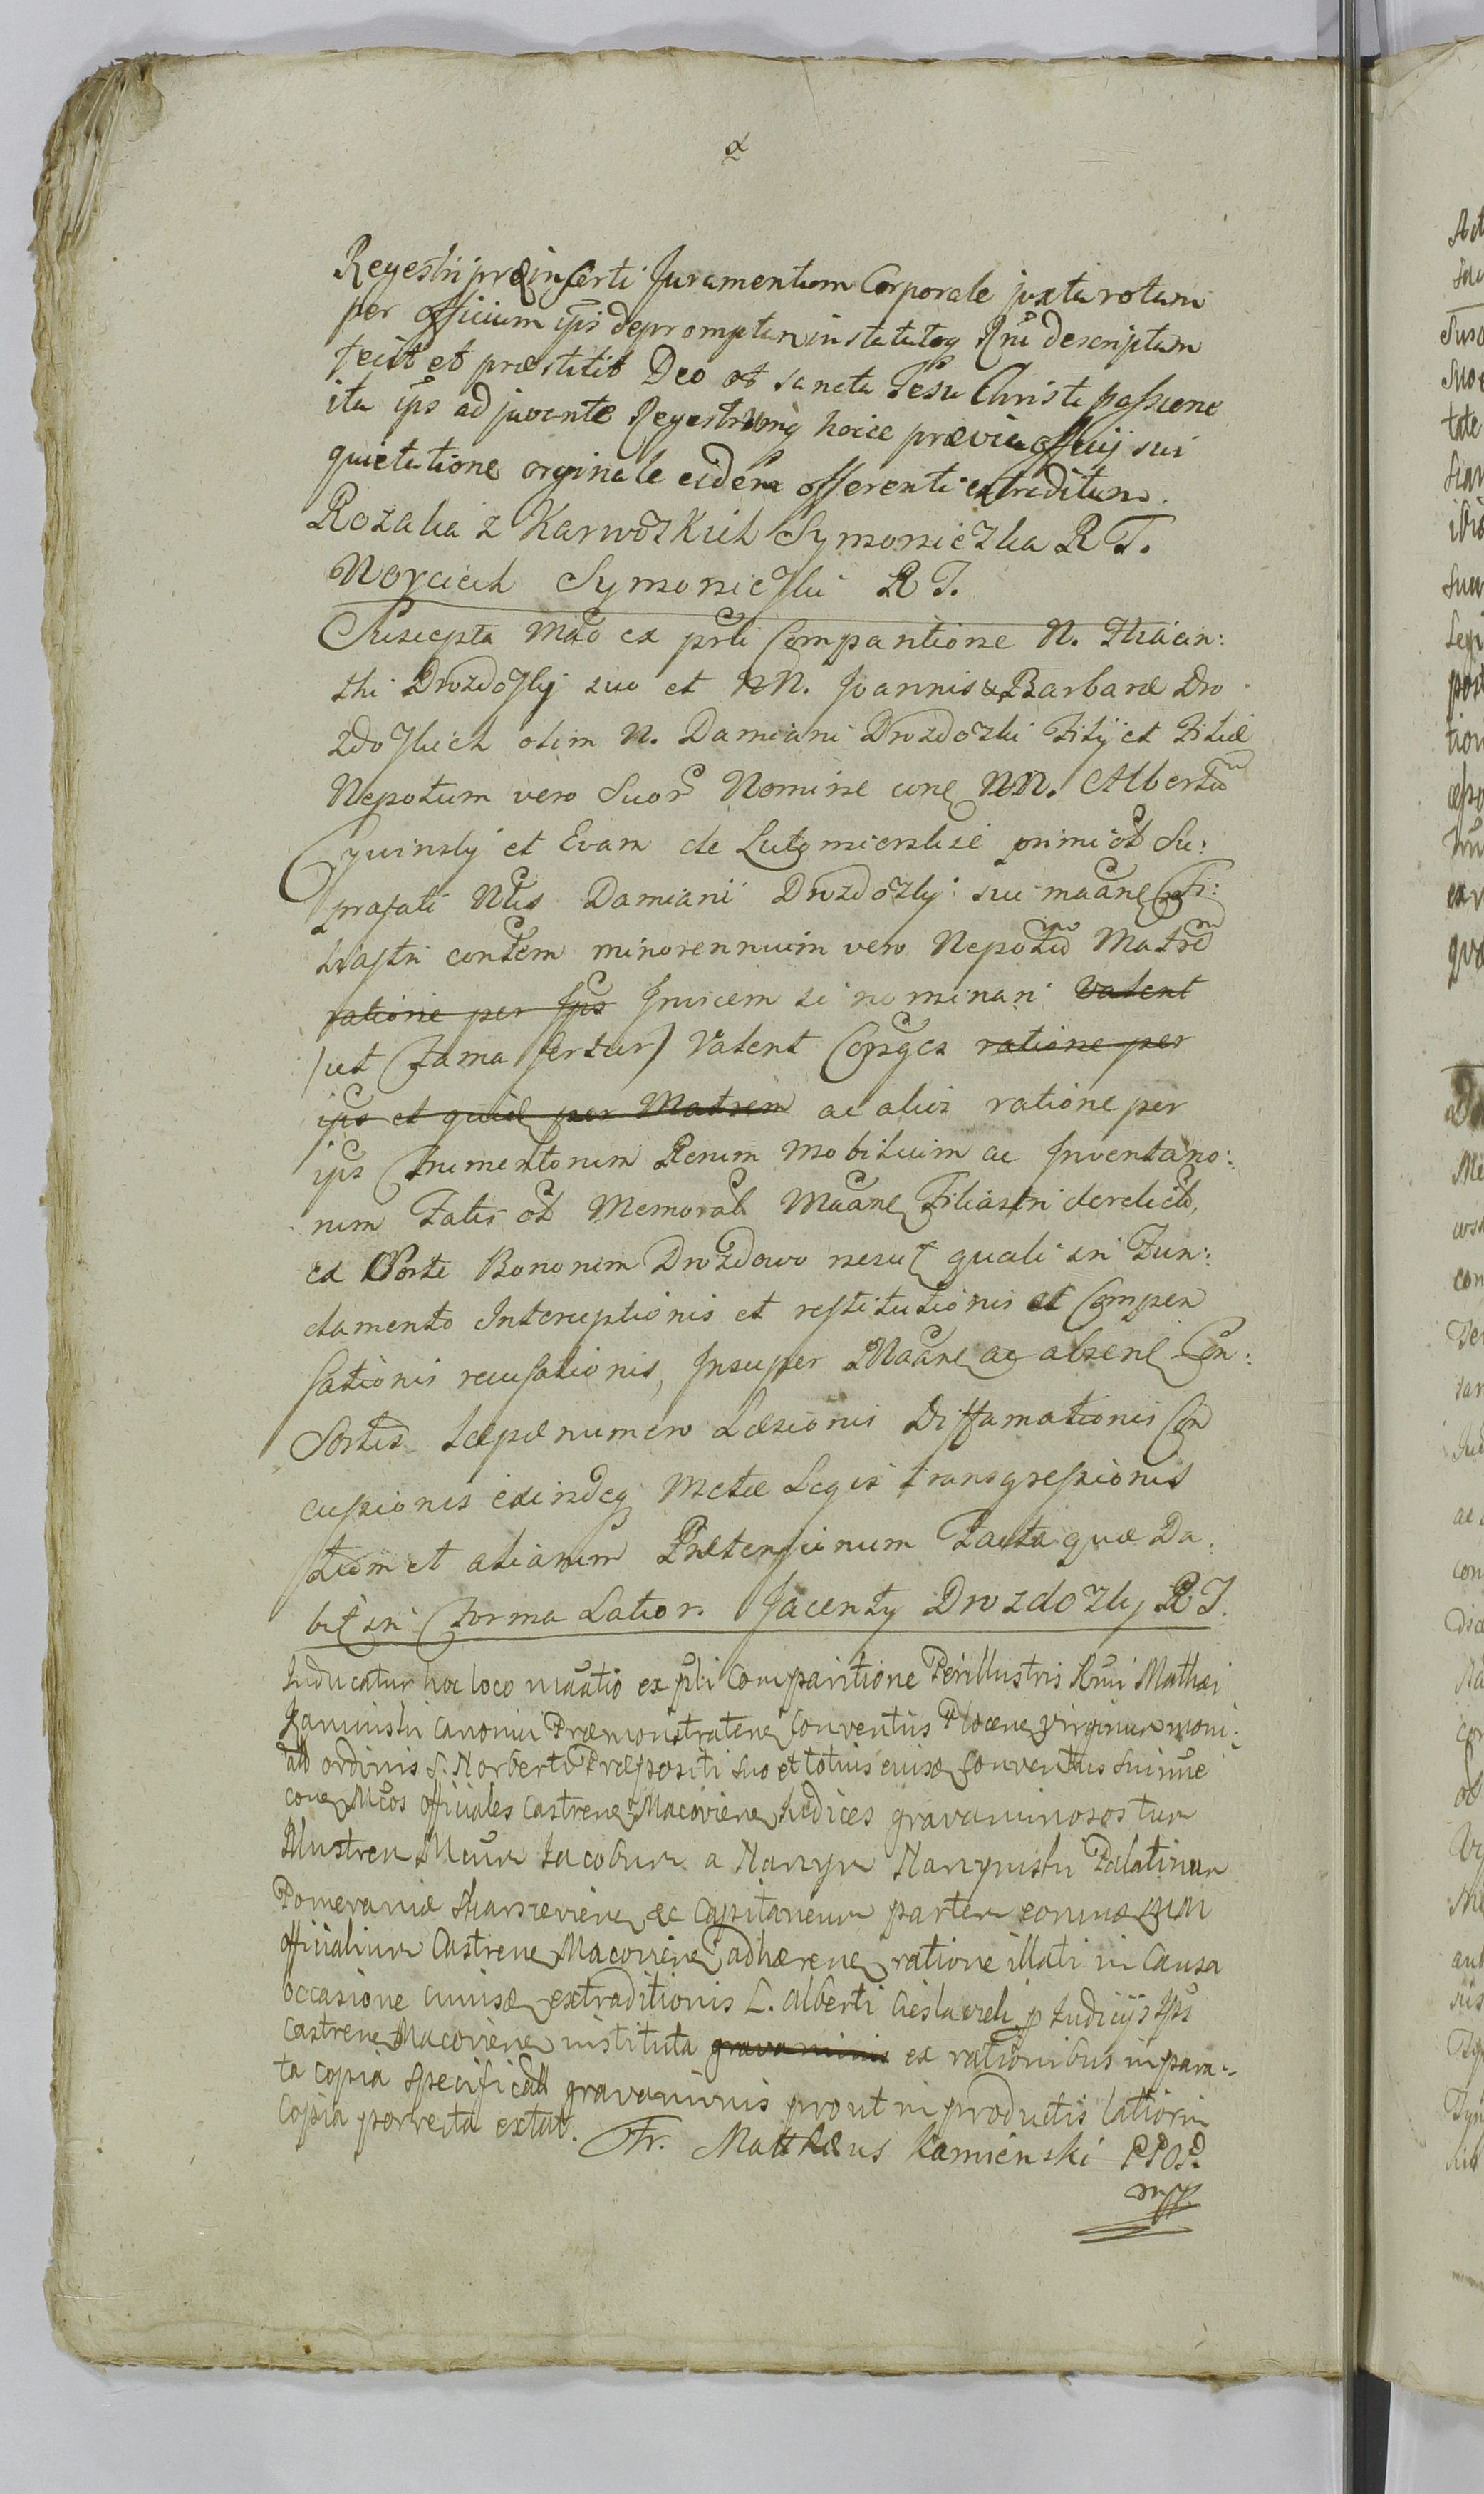 Regestri præinserti Juramentum Corporale juxta rotam
per officium ips depromptam in statutoq Rni descriptam
fecit et præstitit Deo et sancta Jesu Christi passione
ita ips adjuvante Regestrumq hocce prævia officij sui
quietatione orginale eidem offerenti extraditum.
Rozalia z Karwoszkich Symoniczka R T.
Woyciech Symoniczki R T.
Suscepta mao ex prti Comparitione N. Hiacin:
thi Drozdoski suo et NN. Joannis & Barbaræ Dro
zdoskich olim N. Damiani Drozdoski Filij et Filiæ
Nepotum vero Suor Nomine cone NN. Albertum
Cywinsky et Evam de Lutomierskie primi ot Su:
prafati Nlis Damiani Drozdozky sui maane Fi:
liastri contem minorennium vero Nepotum Matrem
ratione per Ips Invicem se nominari valent
(ut Fama fertur) Valent Cosges ratione per
ips et quide per Matrem ac alios ratione per
ips Frumentorum Rerum Mobilium ac Inventario:
rum Fatis ot Memorat Maane Filiastri derelict,
ex Sorte Bonorum Drozdowo nescit quali in Fun:
damento Interceptionis et restitutionis et Compen
sationis recusationis, Insuper Maane ac absene Con:
Sortis Sæpenumero Læsionis Diffamationis Con
cussionis exindeq Metæ Legis transgressionis
et aliarum Prætensionum Facta quæ Da:
bit in Forma Latior. Jacenty Drozdozky R T.
Inducatur hoc loco maatio ex prti Comparitione Perillustris Rmi Mathæi
Kaminski Canonici Præmonstratene Conventus Plocene Virginum moni:
ordinis S. Norberti Præpositi suo et totius eiusd Conventus sui nne
cone Mcos officiales Castrene Macoviene Iudices gravaminosos tum
Illustrem Mcum Iacobum a Narzym Narzymski Palatinum
Pomeraniæ &c Capitaneum partem eorumd MM
officialium Castrene Macoviene adhærene ratione illati in causa
occasione cuiusd extraditionis L. Alberti Cieslacki p Iudicijs Ips
Castrene Macoviene instituta gravaminis ex rationibus in para:
ta copia specificatt gravaminis prout in productis latiorin
Copia porrecta extat. Fr. Matthæus Kamienski PPOP.
mp.